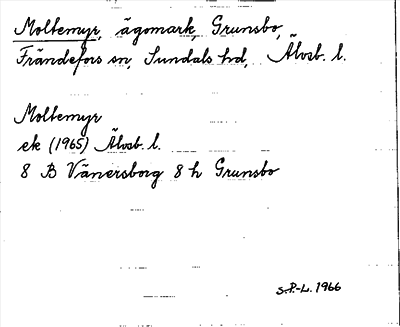 Moltemyr, ägomark, Grunsbo,
Frändefors sn, Sundals hd, Älvsb. l.
Moltemyr
ek (1965) Älvsb. l.
8 B Vänersborg 8 h Grunsbo
S.P.-L. 1966